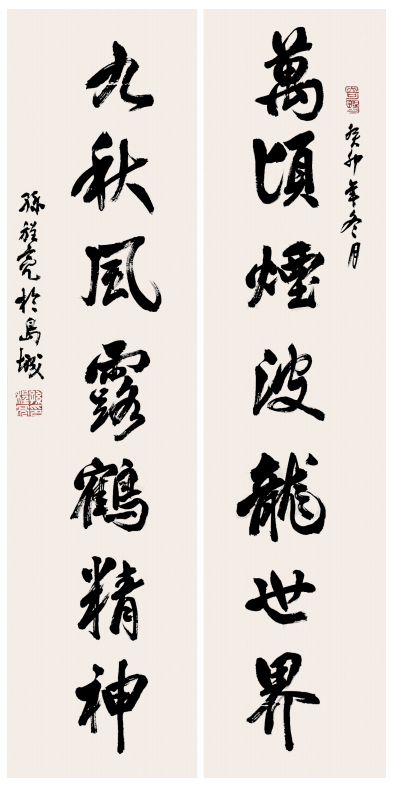 癸卯年冬月
萬頃煙波龍世界
九秋風露鶴精神
孫程亮於島城